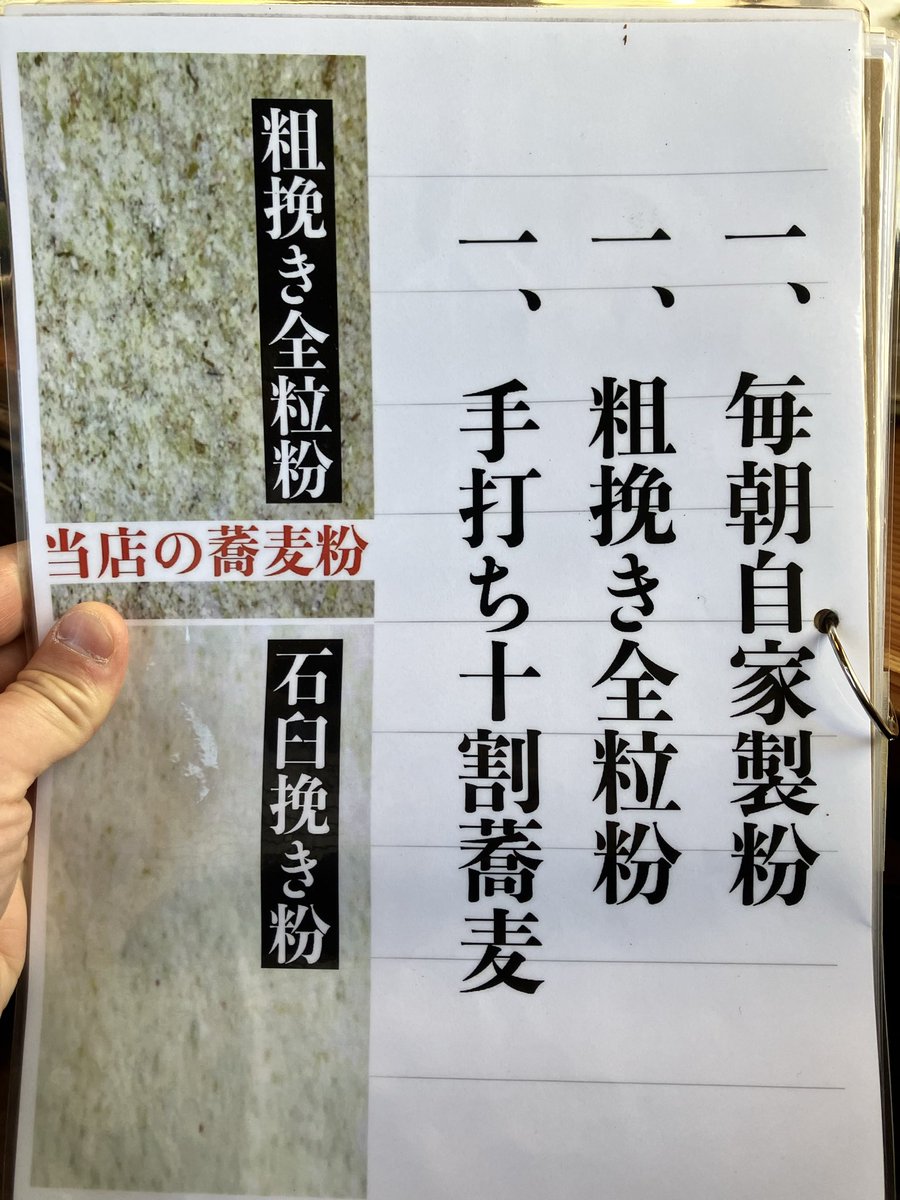 一、毎朝自家製粉
一、粗挽き全粒粉
一、手打ち十割蕎麦
粗挽き全粒粉
当店の蕎麦粉
石臼挽き粉